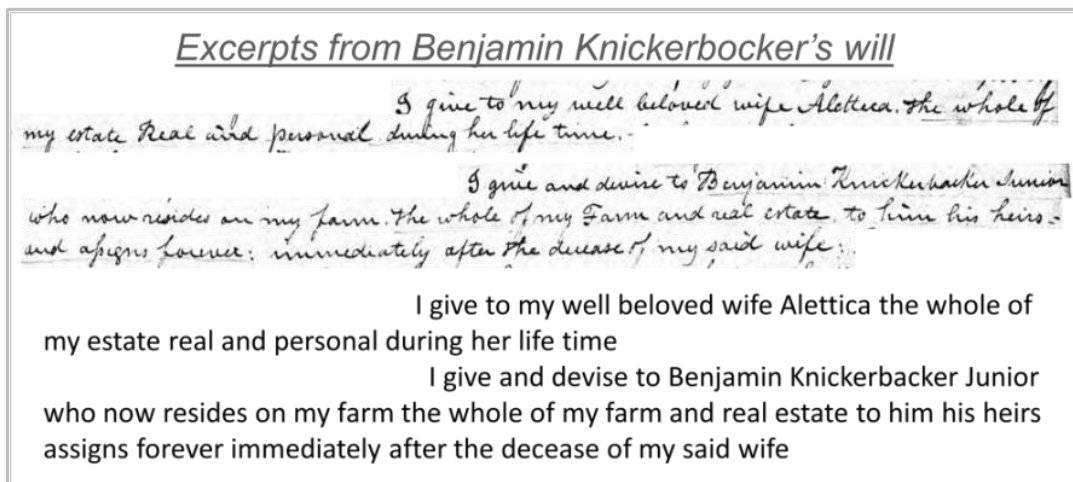 Excerpts from Benjamin Knickerbocker's will
I give to my well beloved wife Alettica. the whole of
my estate Real and personal during her life time.-
I give and devise to Benjamin Knickerbacker Junior
who now resides on my farm. the whole of my Farm and real estate, to him his heirs-
and assigns forever; immediately after the decease of my said wife;
I give to my well beloved wife Alettica the whole of
my estate real and personal during her life time
I give and devise to Benjamin Knickerbacker Junior
who now resides on my farm the whole of my farm and real estate to him his heirs
assigns forever immediately after the decease of my said wife